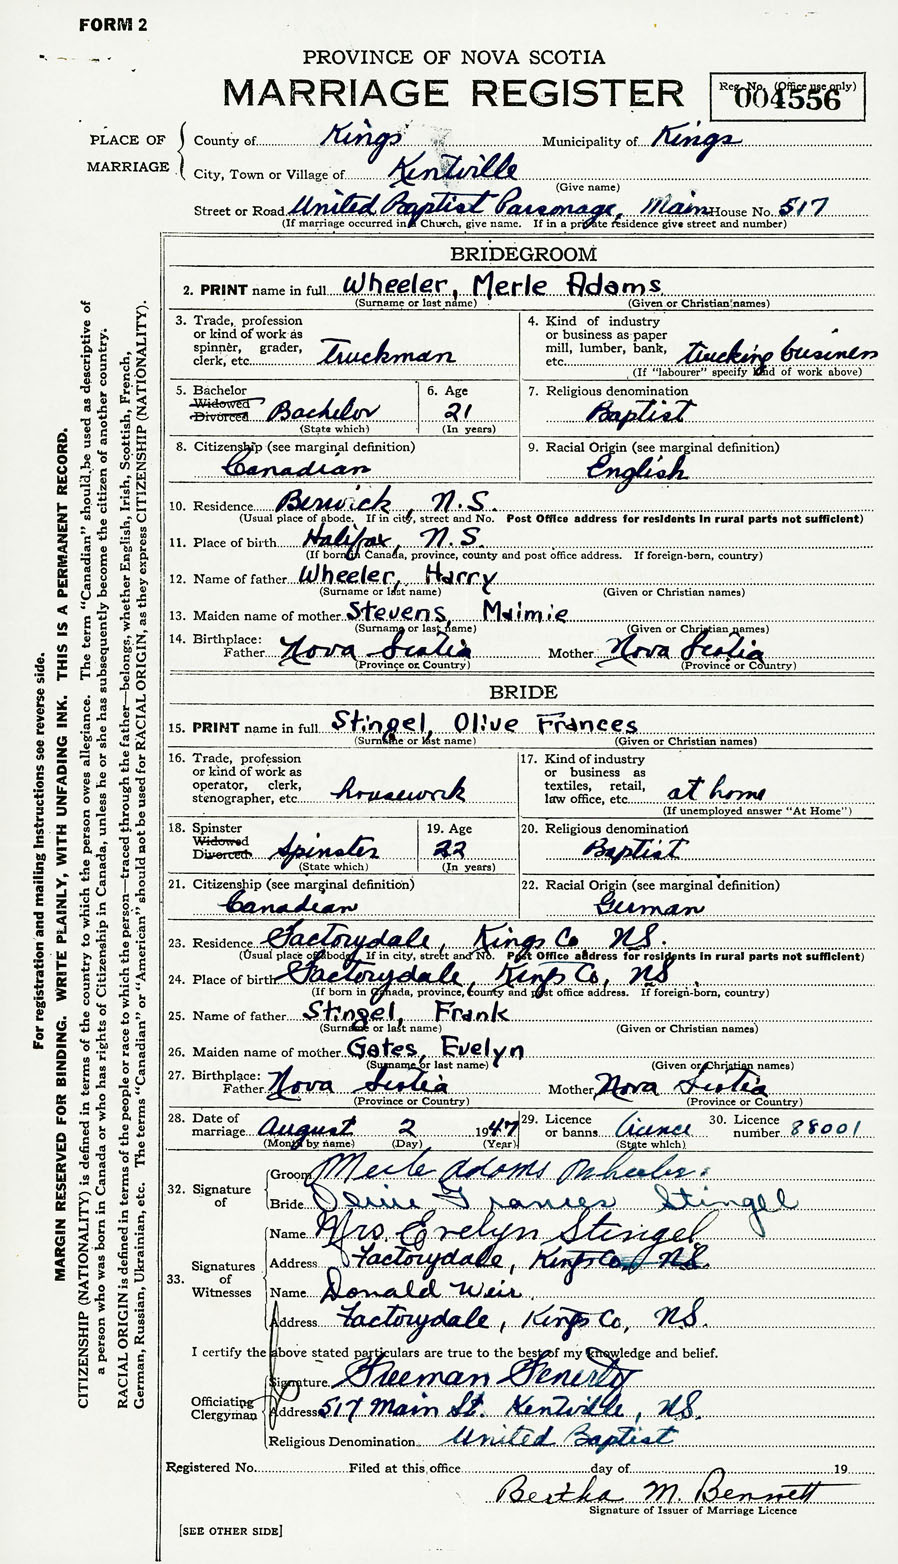 FORM 2
PROVINCE OF NOVA SCOTIA
MARRIAGE REGISTER
Reg. No. (Office use only)
004556
PLACE OF MARRIAGE
County of Kings Municipality of Kings
City, Town or Village of Kentville
(Give name)
Street or Road United Baptist Parsonage, Main House No. 517
(If marriage occurred in a Church, give name. If in a private residence give street and number)
BRIDEGROOM
2. PRINT name in full Wheeler, Merle Adams
(Surname or last name) (Given or Christian names)
3. Trade, profession or kind of work as spinner, grader, clerk, etc. Truckman
4. Kind of industry or business as paper mill, lumber, bank, etc. trucking business
(If "labourer" specify kind of work above)
5. Bachelor Widowed Divorced Bachelor
(State which)
6. Age 21
(In years)
7. Religious denomination Baptist
8. Citizenship (see marginal definition) Canadian
9. Racial Origin (see marginal definition) English
10. Residence Berwick, N.S.
(Usual place of abode. If in city, street and No. Post Office address for residents in rural parts not sufficient)
11. Place of birth Halifax, N.S.
(If born in Canada, province, county and post office address. If foreign-born, country)
12. Name of father Wheeler, Harry
(Surname or last name) (Given or Christian names)
13. Maiden name of mother Stevens, Maimie
(Surname or last name) (Given or Christian names)
14. Birthplace: Father Nova Scotia Mother Nova Scotia
(Province or Country) (Province or Country)
BRIDE
15. PRINT name in full Stingel, Olive Frances
(Surname or last name) (Given or Christian names)
16. Trade, profession or kind of work as operator, clerk, stenographer, etc. housework
17. Kind of industry or business as textiles, retail, law office, etc. at home
(If unemployed answer "At Home")
18. Spinster Widowed Divorced Spinster
(State which)
19. Age 22
(In years)
20. Religious denomination Baptist
21. Citizenship (see marginal definition) Canadian
22. Racial Origin (see marginal definition) German
23. Residence Factorydale, Kings Co, N.S.
(Usual place of abode. If in city, street and No. Post Office address for residents in rural parts not sufficient)
24. Place of birth Factorydale, Kings Co, N.S.
(If born in Canada, province, county and post office address. If foreign-born, country)
25. Name of father Stingel, Frank
(Surname or last name) (Given or Christian names)
26. Maiden name of mother Gates, Evelyn
(Surname or last name) (Given or Christian names)
27. Birthplace: Father Nova Scotia Mother Nova Scotia
(Province or Country) (Province or Country)
28. Date of marriage August 2 1947
(Month by name) (Day) (Year)
29. Licence or banns licence
(State which)
30. Licence number 88001
32. Signature of
Groom Merle Adams Wheeler
Bride Olive Frances Stingel
33. Signatures of Witnesses
Name Mrs. Evelyn Stingel
Address Factorydale, Kings Co, N.S.
Name Donald Weir
Address Factorydale, Kings Co, N.S.
I certify the above stated particulars are true to the best of my knowledge and belief.
Officiating Clergyman
Signature Freeman Fenerty
Address 517 Main St. Kentville, N.S.
Religious Denomination United Baptist
Registered No. Filed at this office day of 19
Bertha M. Bennett
Signature of Issuer of Marriage Licence
[SEE OTHER SIDE]
For registration and mailing instructions see reverse side.
MARGIN RESERVED FOR BINDING. WRITE PLAINLY, WITH UNFADING INK. THIS IS A PERMANENT RECORD.
CITIZENSHIP (NATIONALITY) is defined in terms of the country to which the person owes allegiance. The term "Canadian" should be used as descriptive of
a person who was born in Canada or who has rights of Citizenship in Canada, unless he or she has subsequently become the citizen of another country.
RACIAL ORIGIN is defined in terms of the people or race to which the person—traced through the father—belongs, whether English, Irish, Scottish, French,
German, Russian, Ukrainian, etc. The terms "Canadian" or "American" should not be used for RACIAL ORIGIN, as they express CITIZENSHIP (NATIONALITY).